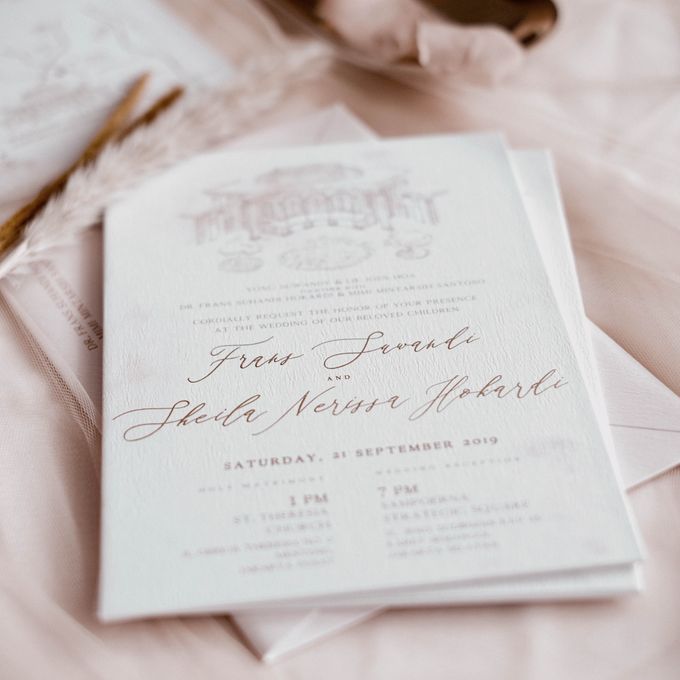 YONG SUWANDY & LIE KIEN HOA
TOGETHER WITH
DR. FRANS SUHANDI HOKARDI & MIMI MINTARSIH SANTOSO
CORDIALLY REQUEST THE HONOR OF YOUR PRESENCE
AT THE WEDDING OF OUR BELOVED CHILDREN
Frans Suwandi
AND
Sheila Nerissa Hokardi
SATURDAY, 21 SEPTEMBER 2019
HOLY MATRIMONY
1 PM
ST. THERESIA
CHURCH
WEDDING RECEPTION
7 PM
SAMPOERNA
STRATEGIC SQUARE